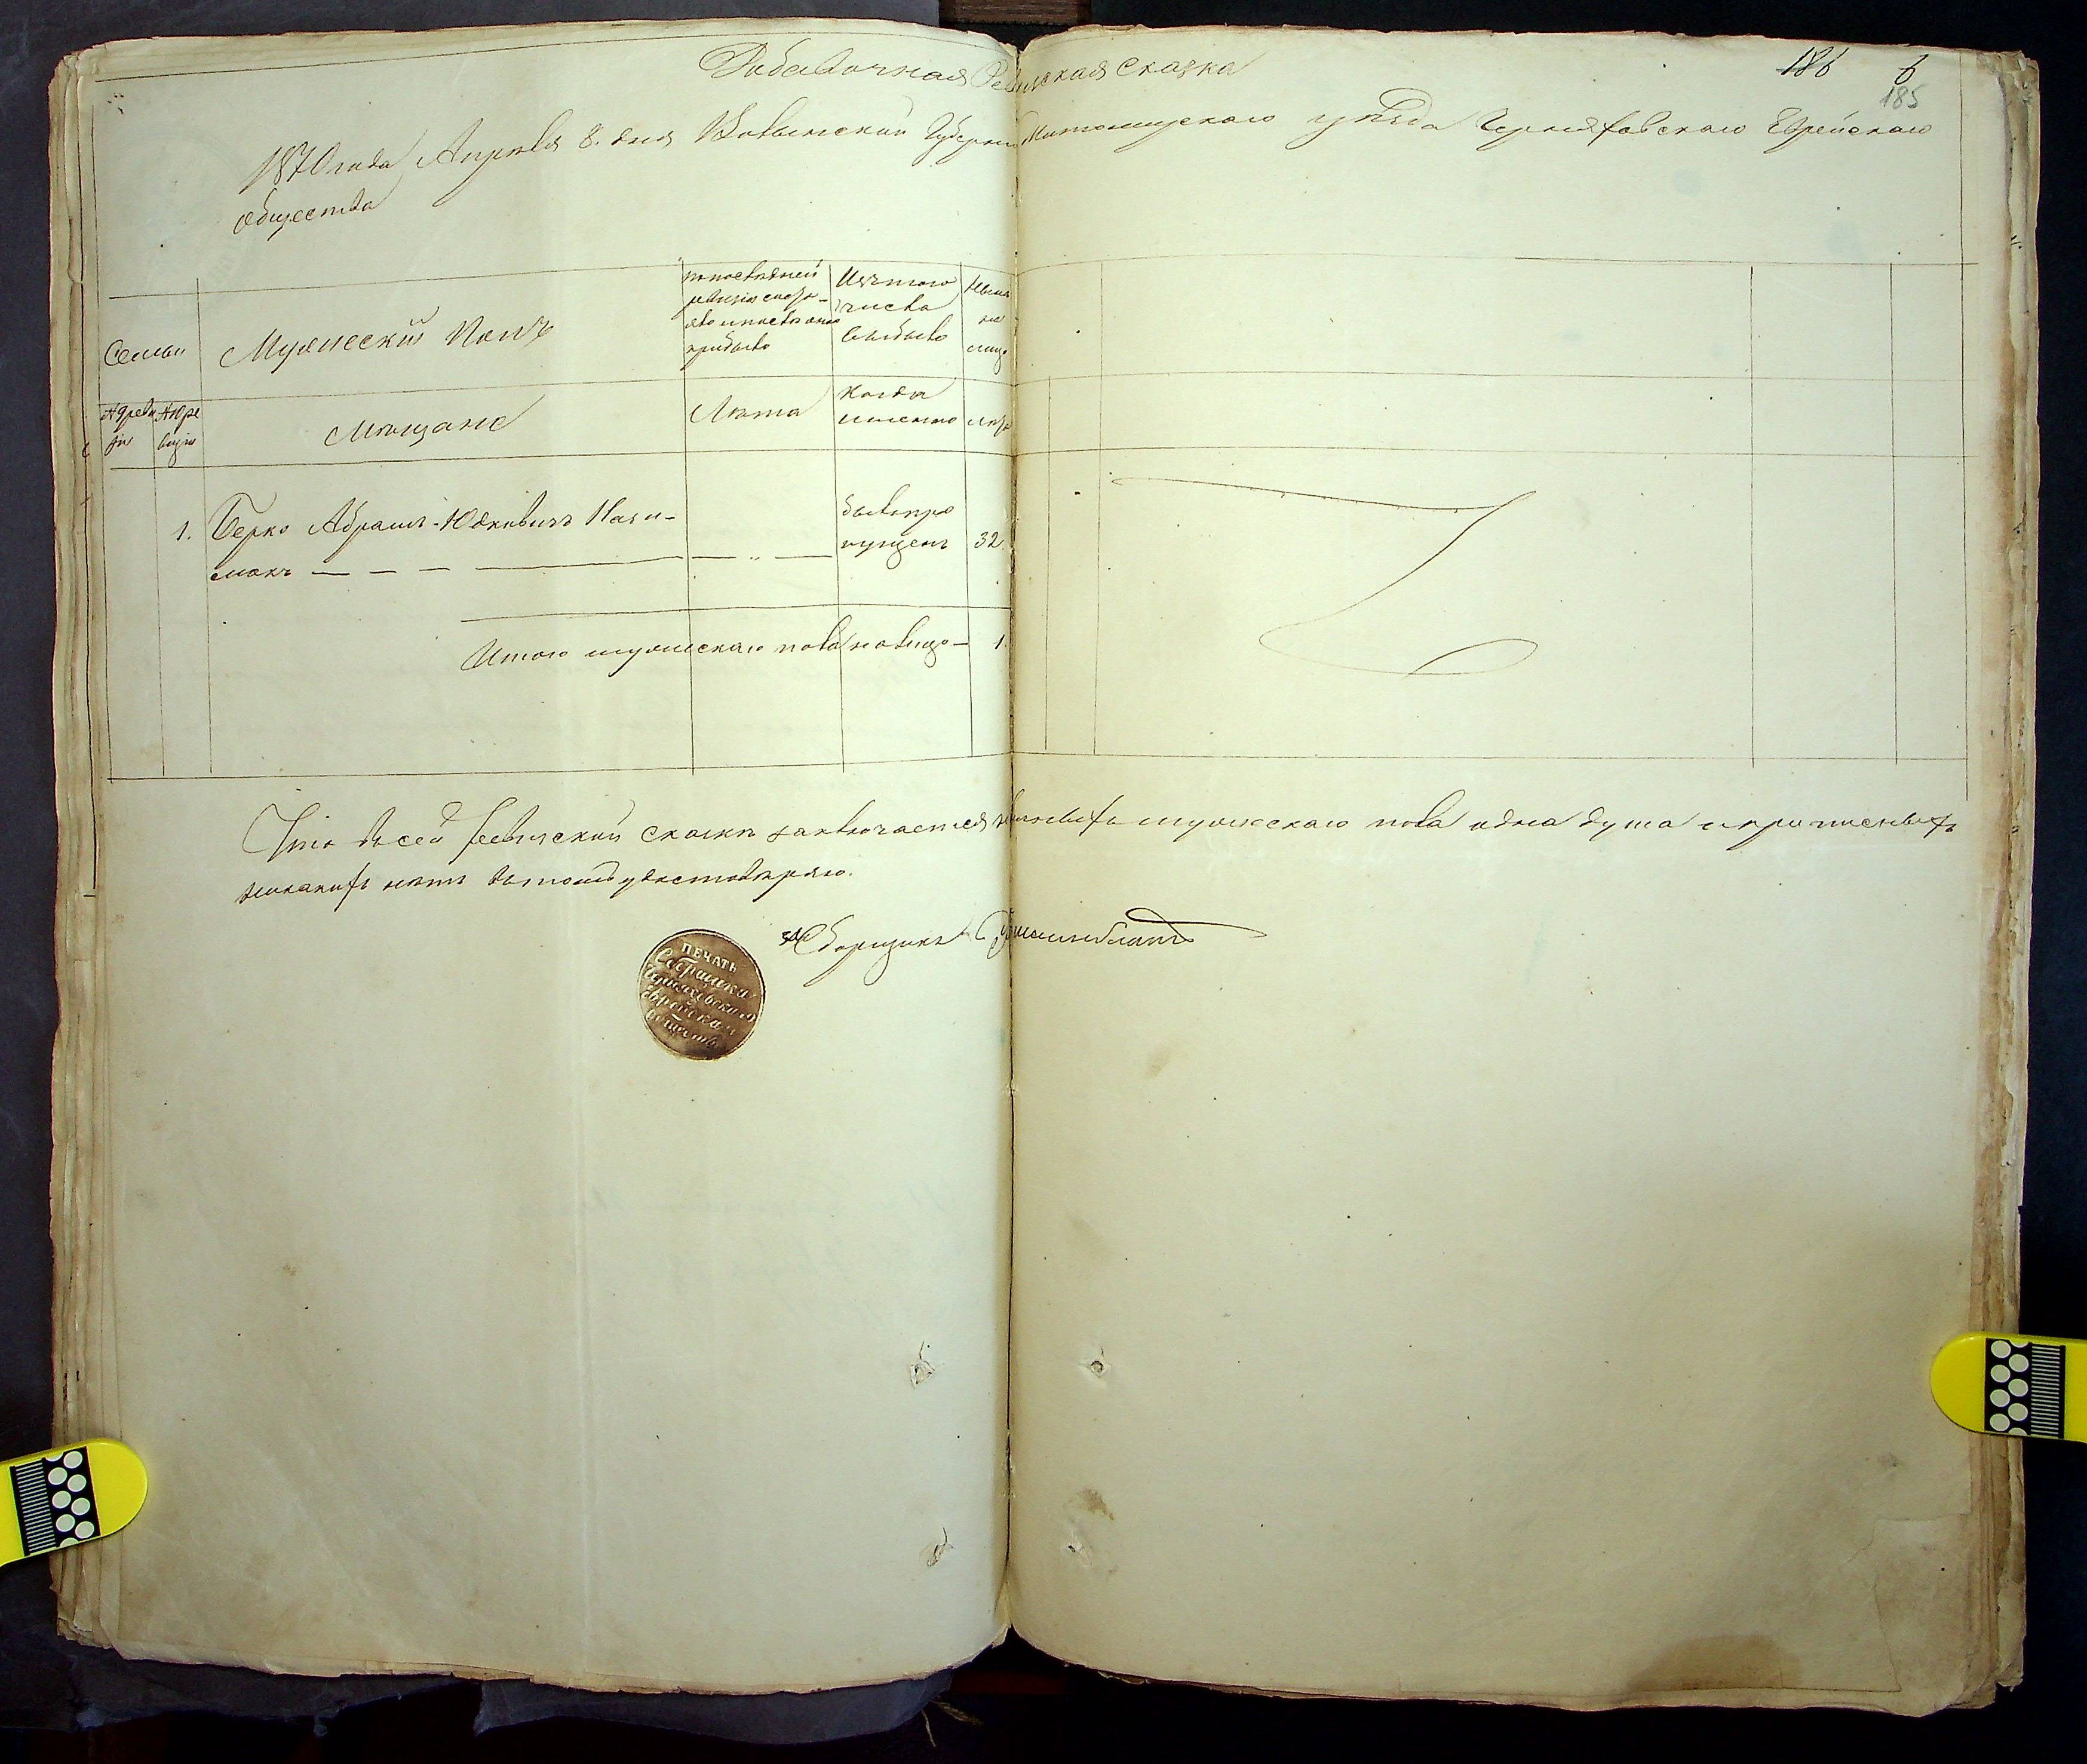 Добавочная Ревизская Сказка
186 6
185
1870 года Апреля 8. дня Волынской Губернии Житомирскаго уезда Черняховскаго Еврейскаго
общества
Семьи
Мужескій Полъ
по последней
ревизіи состо-
яло и после оной
прибыло
Изъ того
числа
выбыло
Ныне
на
лицо
Мещане
Лета
Когда
именно
лета
1. Берко Абрамъ-Юдковичъ
былъ про
пущенъ
32
Итого мужескаго пола на лицо — 1
Что въ сей ревизской сказке заключается мужескаго пола одна душа и прописныхъ
никакихъ нетъ въ томъ удостоверяю.
Сборщикъ
ПЕЧАТЬ
Сборщика
Черняховскаго
Еврейскаго
общества